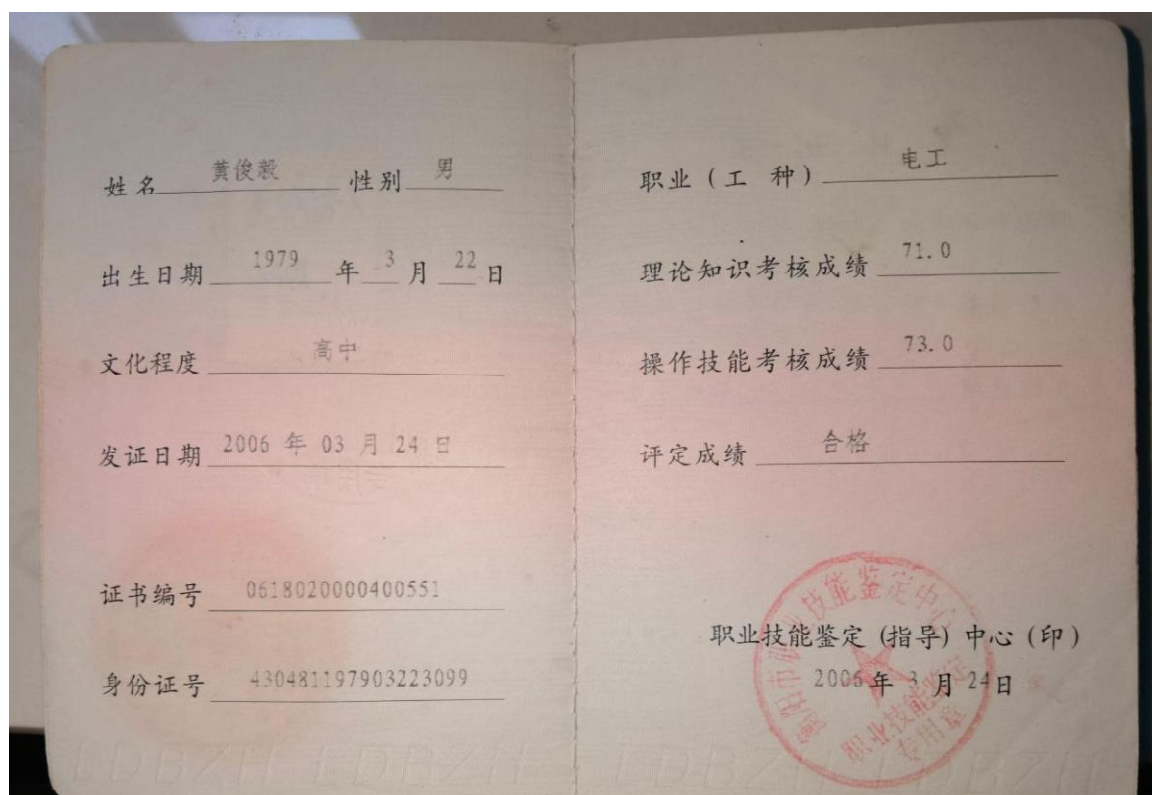 姓名 黄俊毅 性别 男
出生日期 1979 年 3 月 22 日
文化程度 高中
发证日期 2006 年 03 月 24 日
证书编号 0618020000400551
身份证号 430481197903223099
职业(工 种) 电工
理论知识考核成绩 71.0
操作技能考核成绩 73.0
评定成绩 合格
职业技能鉴定(指导)中心(印)
2006 年 3 月 24 日
衡阳市职业技能鉴定中心
职业技能鉴定
专用章
LDBZH LDBZH LDBZH LDBZH